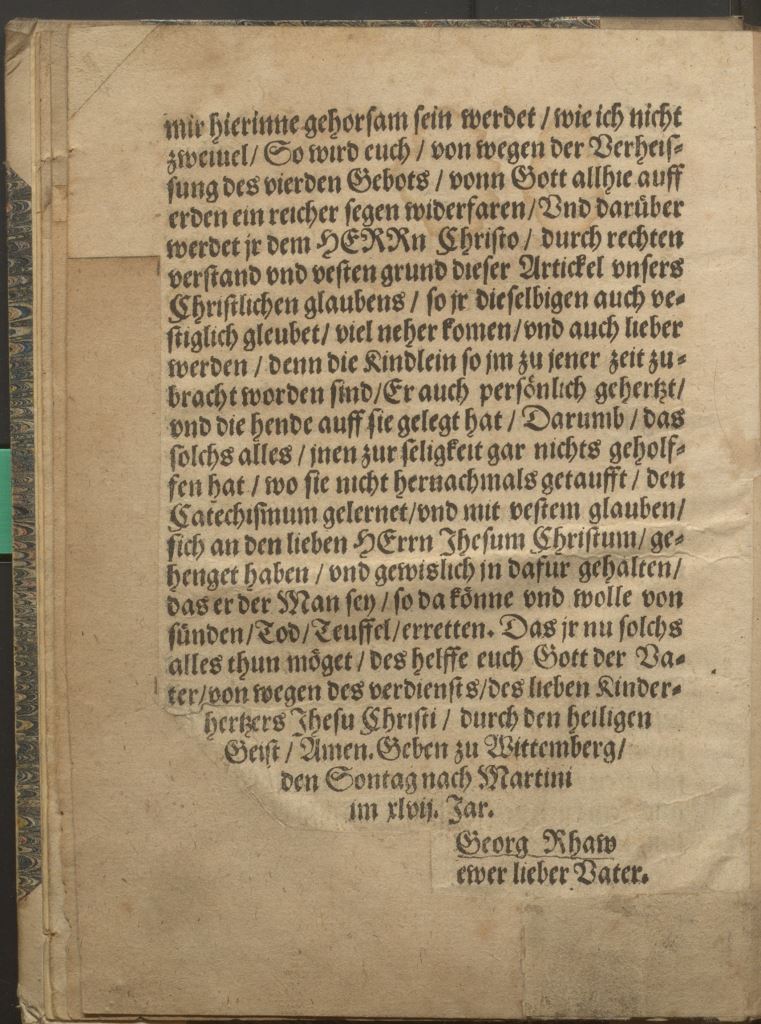 mir hierinne gehorsam sein werdet / wie ich nicht
zweiuel / So wird euch / von wegen der Verheis-
sung des vierden Gebots / vonn Gott allhie auff
erden ein reicher segen widerfaren / Vnd darüber
werdet jr dem HERRn Christo / durch rechten
verstand vnd vesten grund dieser Artickel vnsers
Christlichen glaubens / so jr dieselbigen auch ve-
stiglich gleubet / viel neher komen / vnd auch lieber
werden / denn die Kindlein so jm zu jener zeit zu-
bracht worden sind / Er auch persönlich gehertzt /
vnd die hende auff sie gelegt hat / Darumb / das
solchs alles / jnen zur seligkeit gar nichts geholf-
fen hat / wo sie nicht hernachmals getaufft / den
Catechismum gelernet / vnd mit vestem glauben /
sich an den lieben HErrn Jhesum Christum / ge-
henget haben / vnd gewislich jn dafur gehalten /
das er der Man sey / so da könne vnd wolle von
sünden / Tod / Teuffel / erretten. Das jr nu solchs
alles thun möget / des helffe euch Gott der Va-
ter / von wegen des verdiensts / des lieben Kinder-
hertzers Jhesu Christi / durch den heiligen
Geist / Amen. Geben zu Wittemberg /
den Sontag nach Martini
im xlvij. Jar.
Georg Rhaw
ewer lieber Vater.